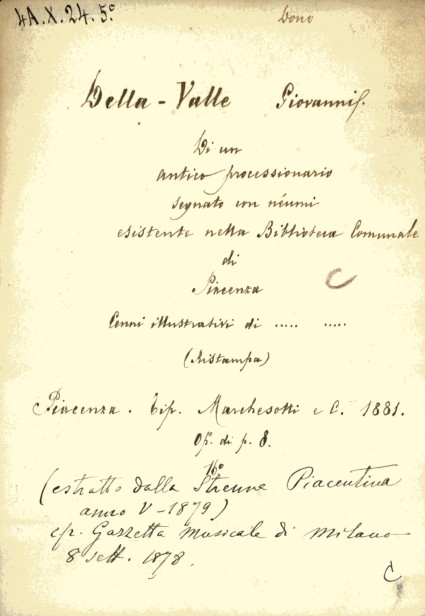 4A.X.24.5º
Dono
Della-Valle Giovanni
Di un
antico processionario
segnato con néumi
esistente nella Biblioteca Comunale
di
Piacenza
C
Cenni illustrativi di ..... .....
(Ristampa)
Piacenza. Tip. Marchesotti e C. 1881.
Op. di p. 8.
16º
(estratto dalla Strenna Piacentina
anno V-1879)
cfr. Gazzetta musicale di Milano
8 sett. 1878.
C